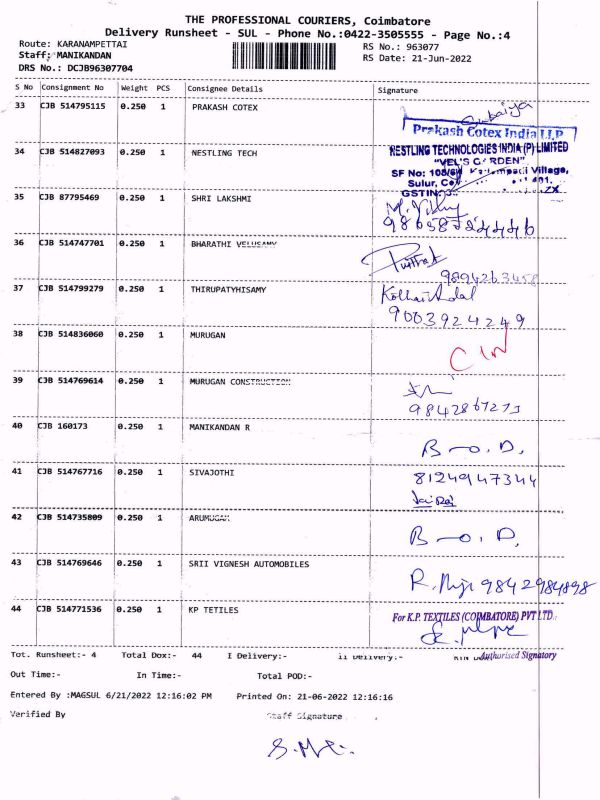 THE PROFESSIONAL COURIERS, Coimbatore
Delivery Runsheet - SUL - Phone No.:0422-3505555 - Page No.:4
Route: KARANAMPETTAI RS No.: 963077
Staff: MANIKANDAN RS Date: 21-Jun-2022
DRS No.: DCJB96307704
S No Consignment No Weight PCS Consignee Details Signature
33 CJB 514795115 0.250 1 PRAKASH COTEX
Prakash Cotex India LLP
34 CJB 514827093 0.250 1 NESTLING TECH NESTLING TECHNOLOGIES INDIA (P) LIMITED
"VEL'S GARDEN"
SF No: Village,
Sulur,
GSTIN:
35 CJB 87795469 0.250 1 SHRI LAKSHMI
36 CJB 514747701 0.250 1 BHARATHI VELUSAMY
9894263458
37 CJB 514799279 0.250 1 THIRUPATYHISAMY
9003924249
38 CJB 514836060 0.250 1 MURUGAN
39 CJB 514769614 0.250 1 MURUGAN CONSTRUCTION
9842867273
40 CJB 160173 0.250 1 MANIKANDAN R
B-O.D.
41 CJB 514767716 0.250 1 SIVAJOTHI 8124947344
42 CJB 514735809 0.250 1 ARUMUGAM
B-O.D.
43 CJB 514769646 0.250 1 SRII VIGNESH AUTOMOBILES
9842984898
44 CJB 514771536 0.250 1 KP TETILES For K.P. TEXTILES (COIMBATORE) PVT LTD.
Authorised Signatory
Tot. Runsheet:- 4 Total Dox:- 44 I Delivery:- ii Delivery:-
Out Time:- In Time:- Total POD:-
Entered By :MAGSUL 6/21/2022 12:16:02 PM Printed On: 21-06-2022 12:16:16
Verified By Staff Signature